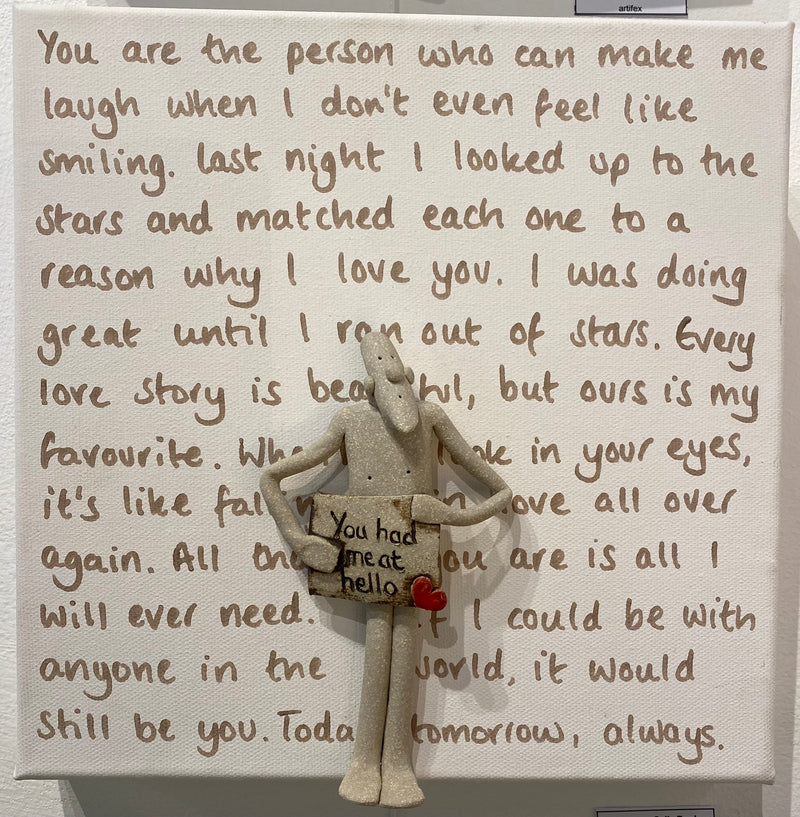 artifex
You are the person who can make me
laugh when I don't even feel like
smiling. Last night I looked up to the
stars and matched each one to a
reason why I love you. I was doing
great until I ran out of stars. Every
love story is bea ful, but ours is my
favourite. Whe ok in your eyes,
it's like fal in in love all over
again. All tha you are is all I
will ever need. f I could be with
anyone in the world, it would
still be you. Toda tomorrow, always.
You had
me at
hello